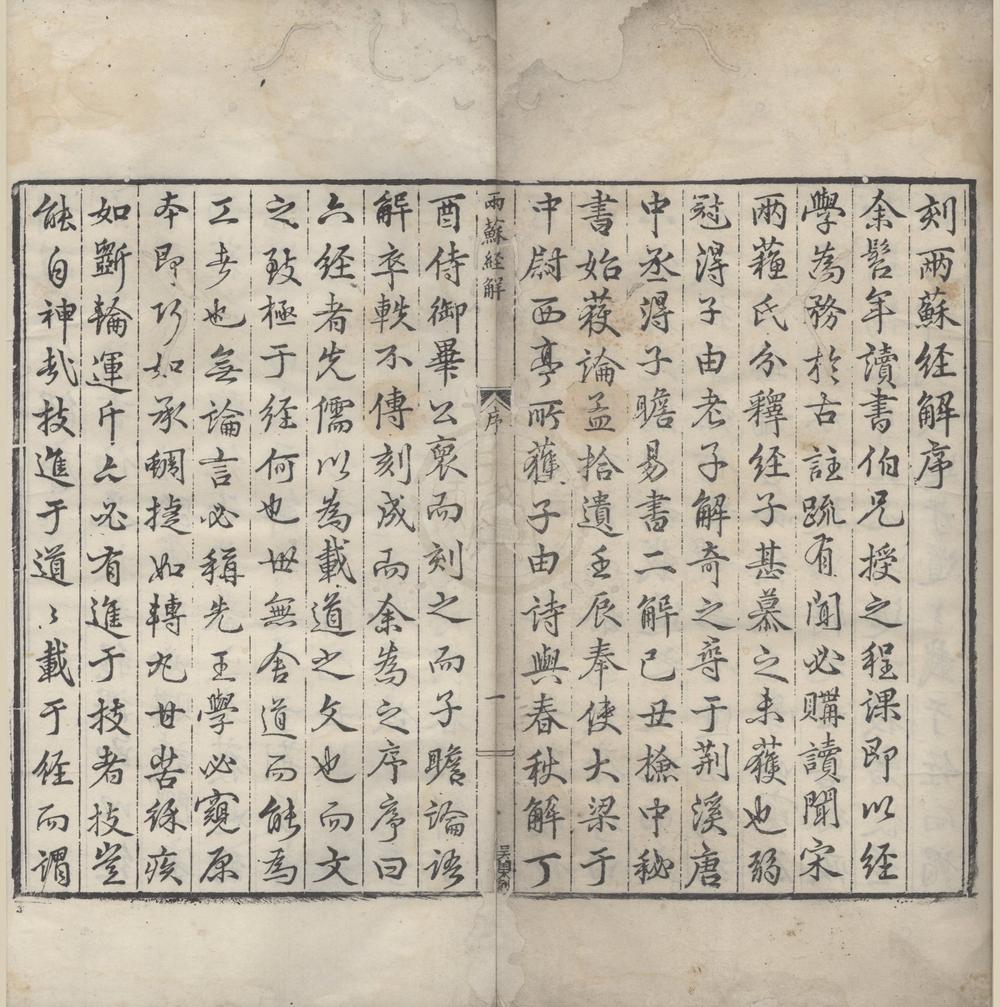 刻兩蘇經解序
余髫年讀書伯兄授之程課即以經
學為務於古註疏有聞必購讀聞宋
兩蘓氏分釋經子甚慕之未獲也弱
冠得子由老子解奇之尋于荆溪唐
中丞得子瞻易書二解己丑檢中秘
書始獲論孟拾遺壬辰奉使大梁于
中尉西亭所獲子由詩與春秋解丁
兩蘇經解
序
一
酉侍御畢公裒而刻之而子瞻論語
解卒軼不傳刻成而余為之序序曰
六經者先儒以為載道之文也而文
之致極于經何也世無舍道而能為
工者也無論言必稱先王學必窺原
本即巧如承蜩捷如轉丸甘苦徐疾
如斲輪運斤亦必有進于技者技豈
能自神哉技進于道〻載于經而謂